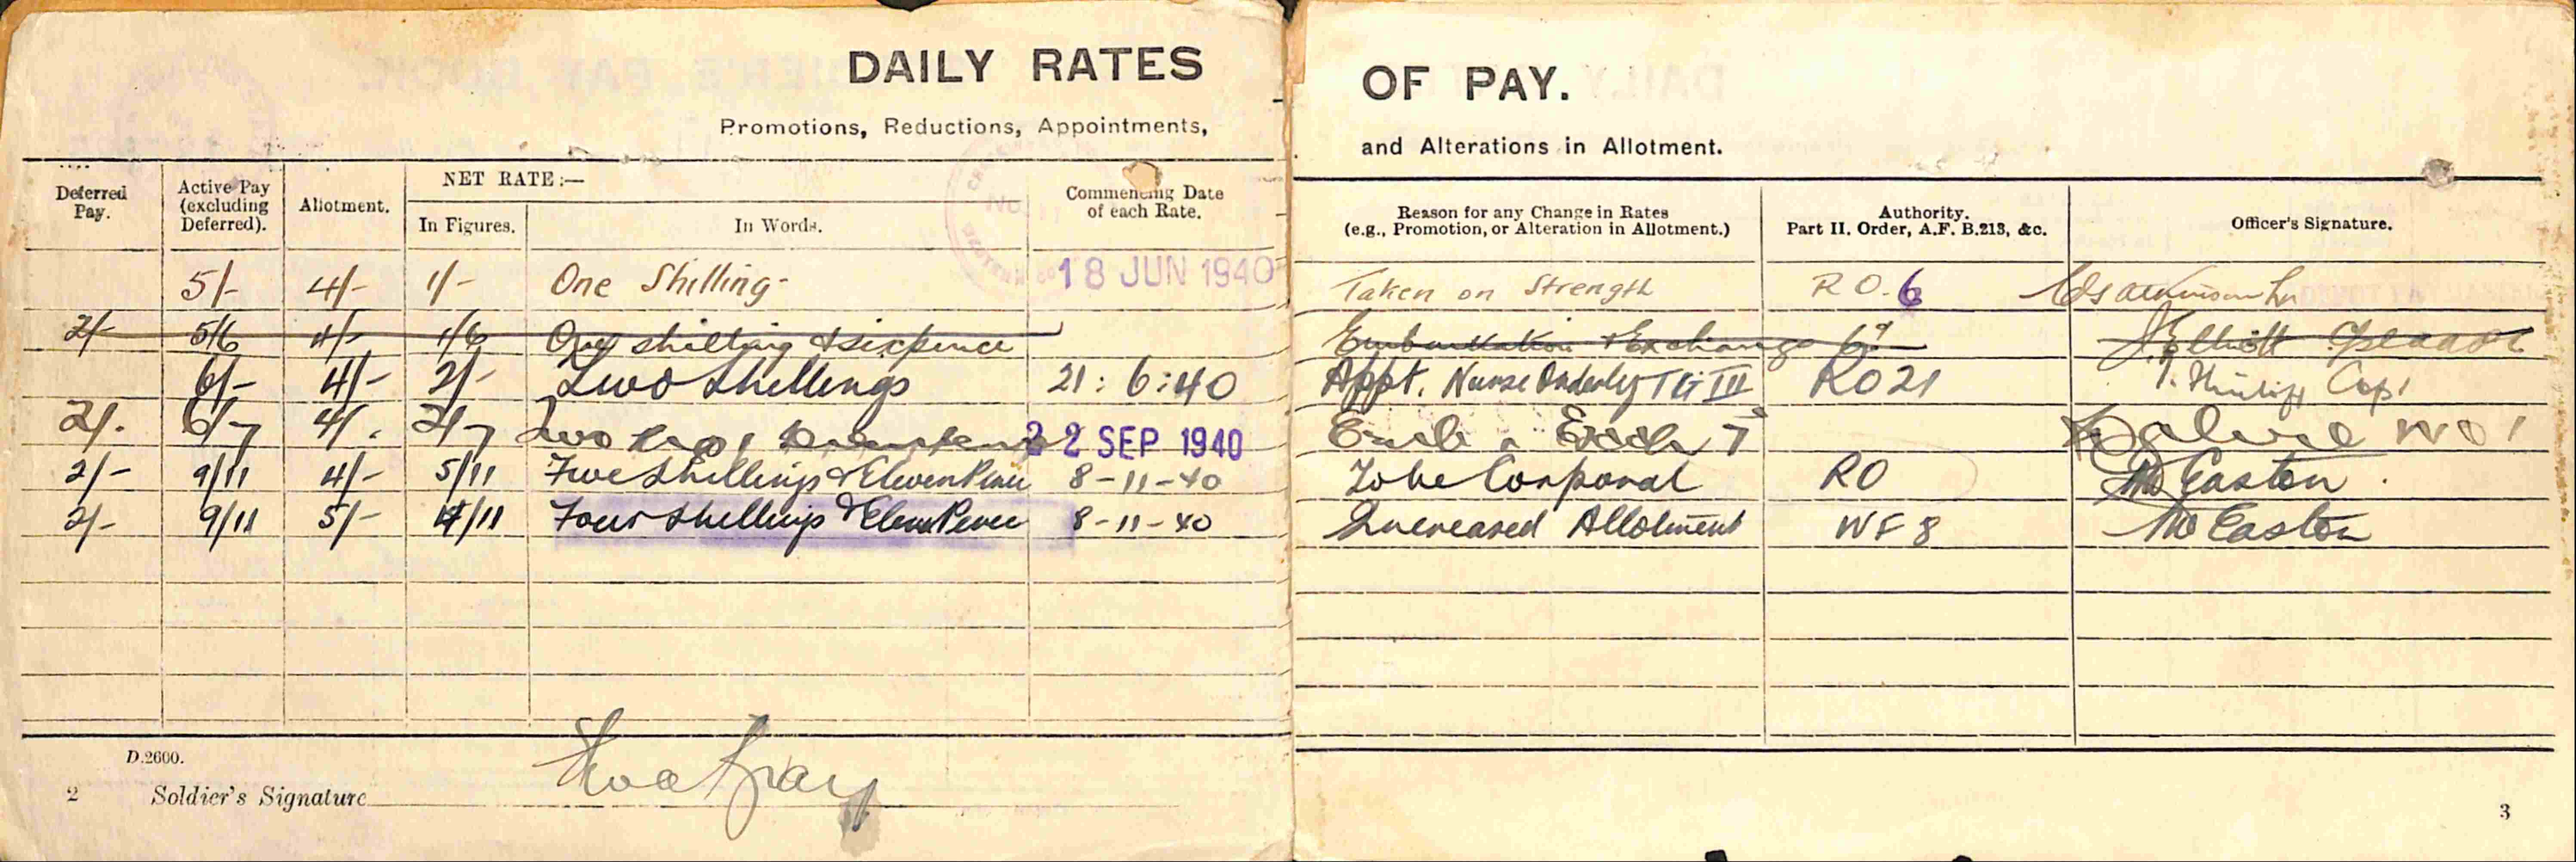 DAILY RATES OF PAY.
Promotions, Reductions, Appointments, and Alterations in Allotment.
Deferred Pay. Active Pay (excluding Deferred). Allotment. NET RATE:— In Figures. In Words. Commencing Date of each Rate. Reason for any Change in Rates (e.g., Promotion, or Alteration in Allotment.) Authority. Part II. Order, A.F. B.213, &c. Officer's Signature.
5/- 4/- 1/- One Shilling- 18 JUN 1940 Taken on Strength RO.6
2/- 5/6 4/- 1/6 One shilling & sixpence Embarkation & Exchange 6d J Elliott
6/- 4/- 2/- Two Shillings 21:6:40 Appt. Nurse Orderly TG III RO21 Capt
2/. 6/7 4/. 2/7 Two 22 SEP 1940 Emb & Exch 7d WO1
2/- 9/11 4/- 5/11 Five Shillings & Eleven Pence 8-11-40 To be Corporal RO Easton.
2/- 9/11 5/- 4/11 Four Shillings & Eleven Pence 8-11-40 Increased Allotment WF8 Easton
D.2600.
2 Soldier's Signature Gray
3